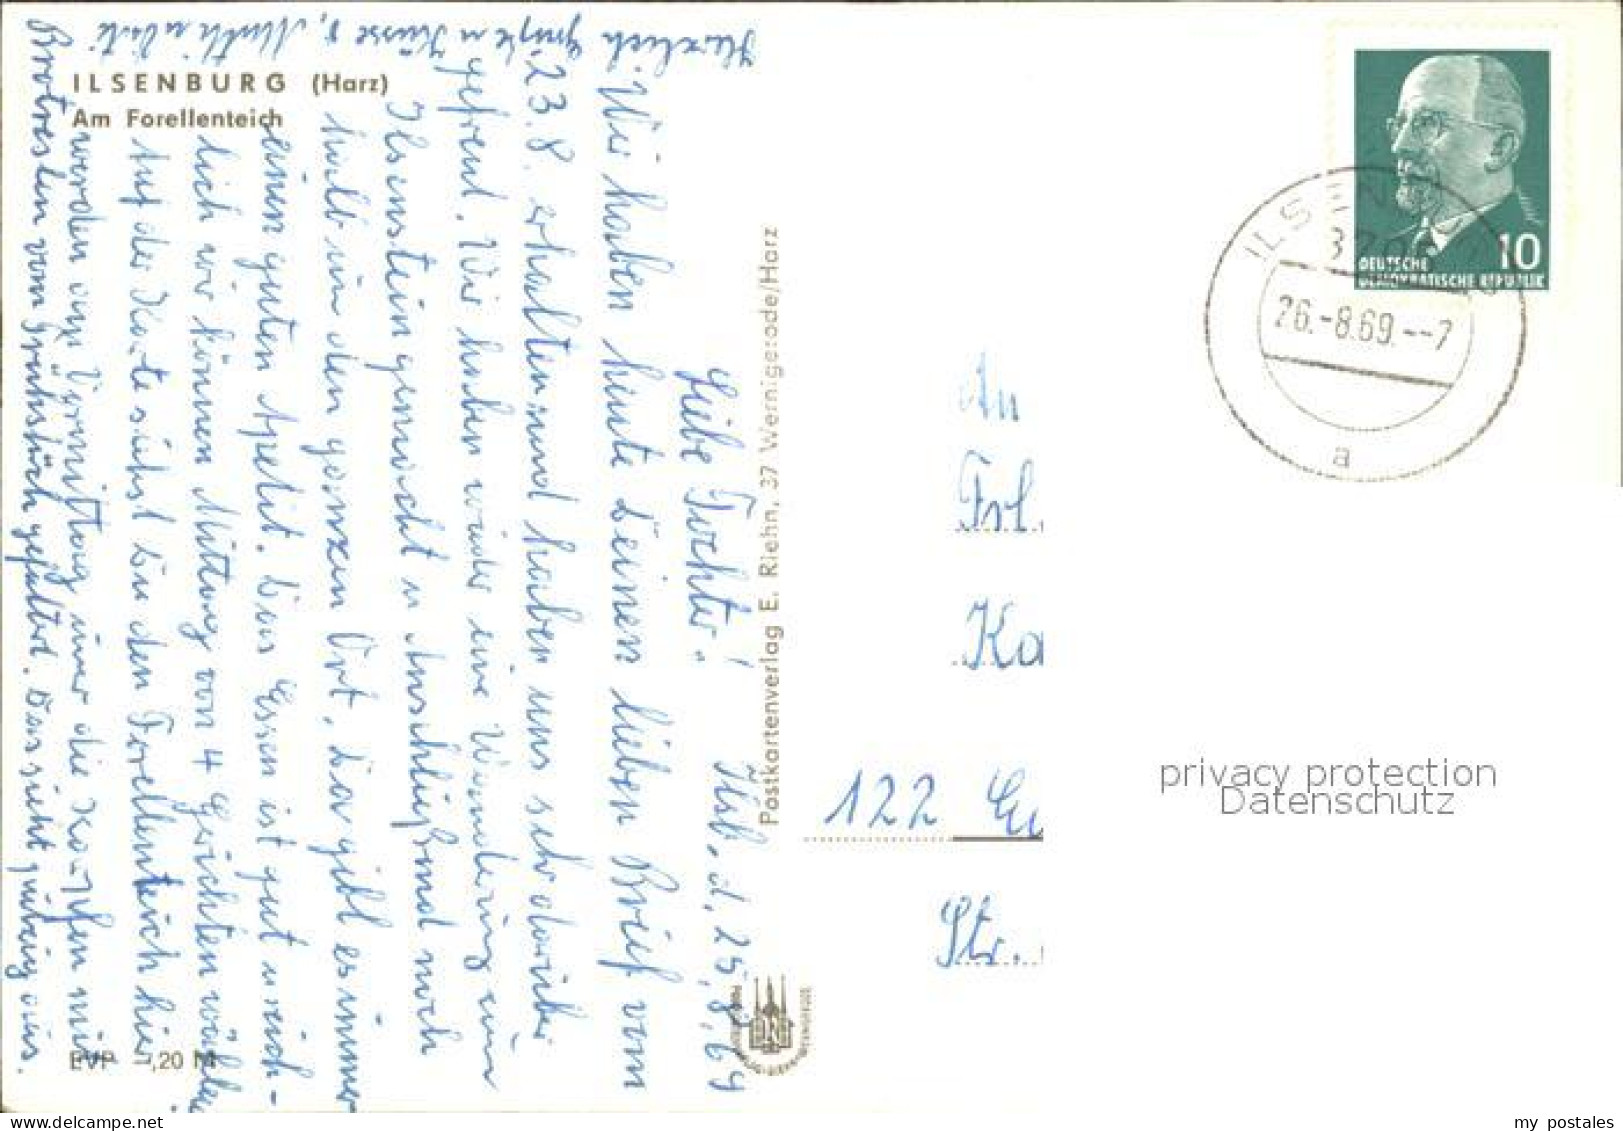 ILSENBURG (Harz)
Am Forellenteich
Ilsb., d. 25.8.69
Liebe Tochter!
Wir haben heute Deinen lieben Brief vom
23.8. erhalten und haben uns sehr darüber
gefreut. Wir haben wieder eine Wanderung zum
Ilsenstein gemacht u anschließend noch
halb um den ganzen Ort. Da gibt es immer
einen guten Apetit. Das Essen ist gut u reich-
lich wir können Mittag von 4 Gerichten wählen
Auf der Karte siehst Du den Forellenteich hier
werden am Vormittag immer die Karpfen mit
Brotresten vom Frühstück gefüttert. Das sieht putzig aus.
Herzlich Grüße u Küsse v. Mutti u Vati
EVP -,20 M
Postkartenverlag E. Riehn, 37 Wernigerode/Harz
10
DEUTSCHE
DEMOKRATISCHE REPUBLIK
26.-8.69.--7
a
An
Frl
Ka
122
Str.
privacy protection
Datenschutz
my postales